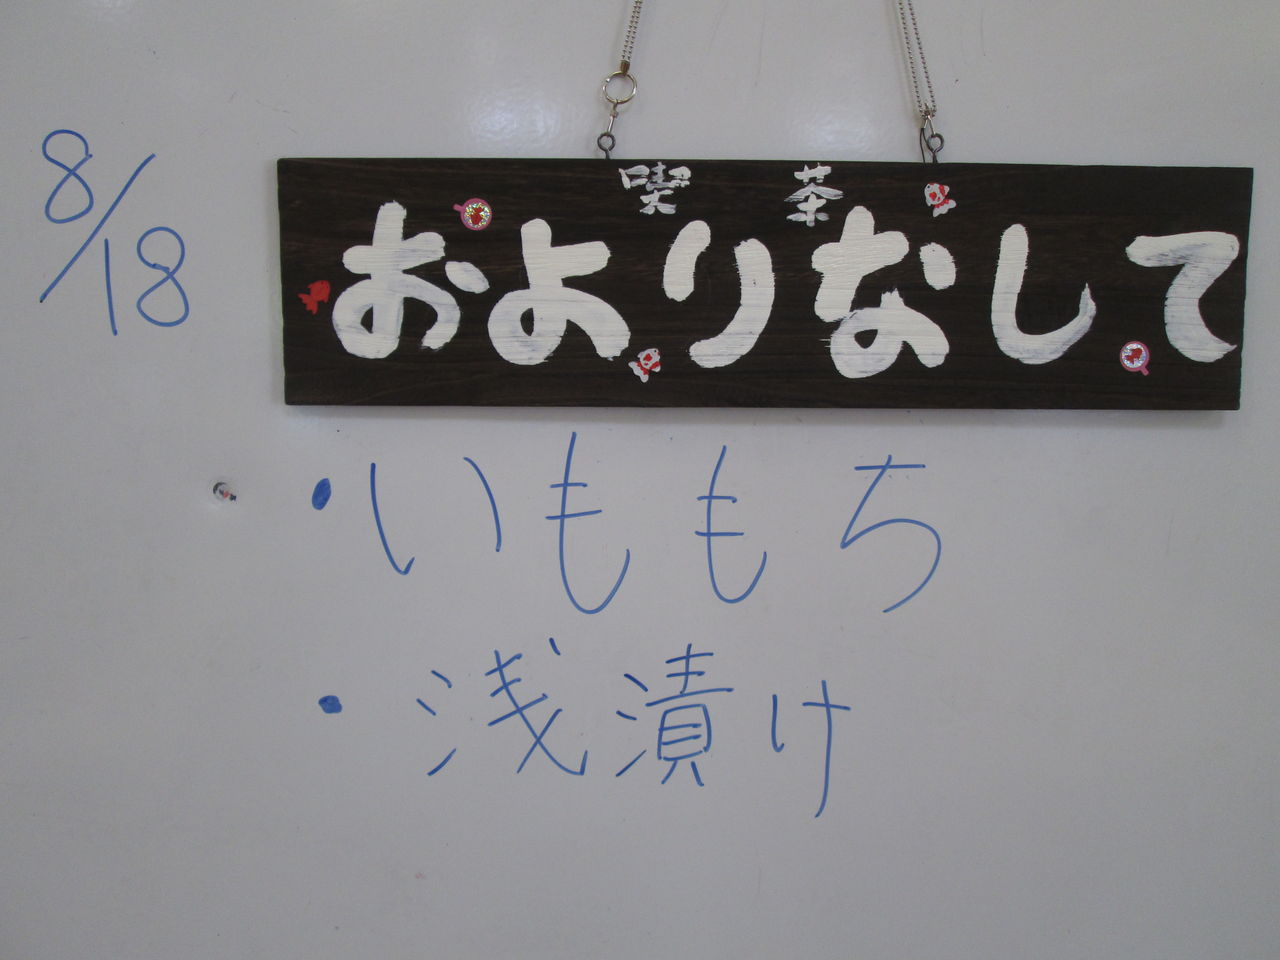 8/18
喫茶
およりなして
・いももち
・浅漬け